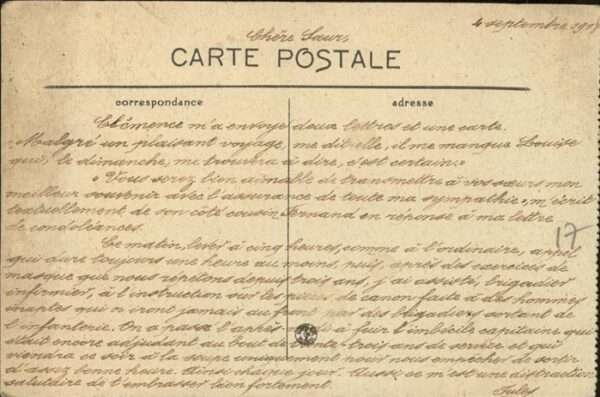 4 septembre 1917
Chère Sœur,
CARTE POSTALE
correspondance
adresse
Clémence m'a envoyé deux lettres et une carte.
"Malgré un plaisant voyage, me dit-elle, il me manque Louise
qui, le dimanche, me trouvera à dire, c'est certain."
"Vous serez bien aimable de transmettre à vos sœurs mon
meilleur souvenir avec l'assurance de toute ma sympathie", m'écrit
textuellement de son côté cousin Fernand en réponse à ma lettre
de condoléances.
17
Ce matin, lever à cinq heures, comme à l'ordinaire, appel
qui dure toujours une heure au moins, puis, après des exercices de
masque que nous répétons depuis trois ans, j'ai assisté, brigadier
infirmier, à l'instruction sur les pièces de canon faite à des hommes
inaptes qui n'iront jamais au front par des brigadiers sortant de
l'infanterie. On a passé l'après-midi à fuir l'imbécile capitaine qui
était encore adjudant au bout de trente-trois ans de service et qui
viendra ce soir à la soupe uniquement pour nous empêcher de sortir
d'assez bonne heure. Ainsi chaque jour. Aussi, ce m'est une distraction
salutaire de t'embrasser bien fortement.
Jules